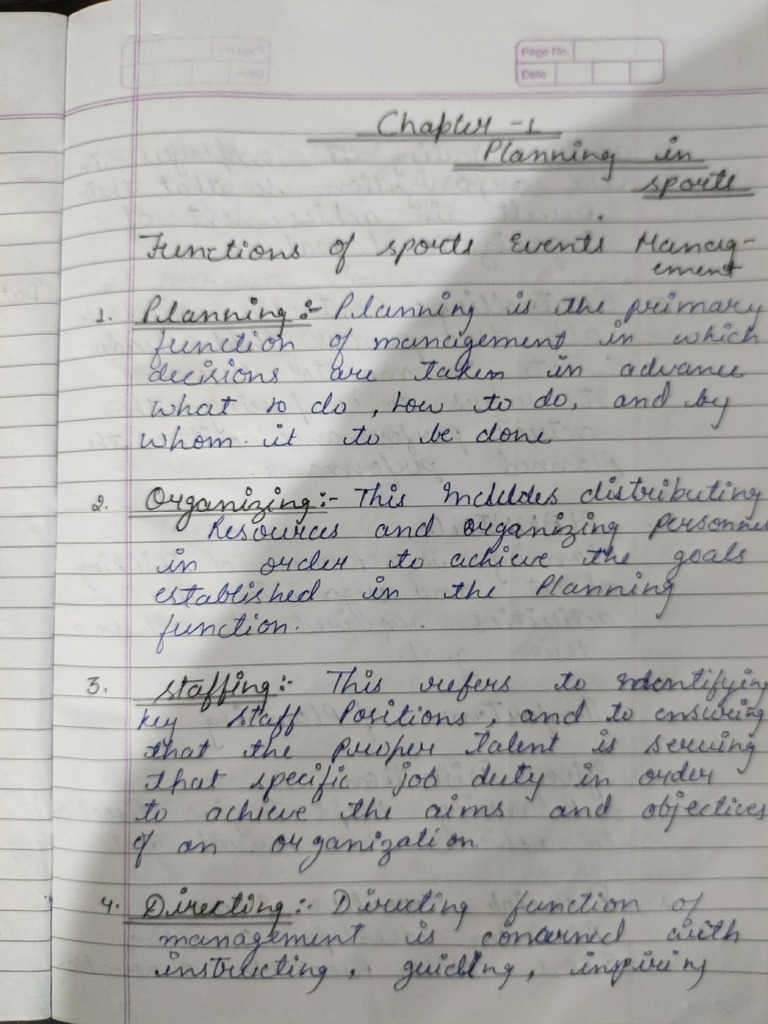 Page No.
Date
Chapter - 1
Planning in
sports
Functions of sports Events Manag-
ement
1. Planning :- Planning is the primary
function of management in which
decisions are taken in advance
what to do, how to do, and by
whom it to be done
2. Organizing :- This Includes distributing
Resources and organizing personnel
in order to achieve the goals
established in the Planning
function.
3. Staffing :- This refers to indentifying
key staff Positions, and to ensuring
that the proper talent is serving
that specific job duty in order
to achieve the aims and objectives
of an organization
4. Directing :- Directing function of
management is concerned with
instructing, guiding, inspiring